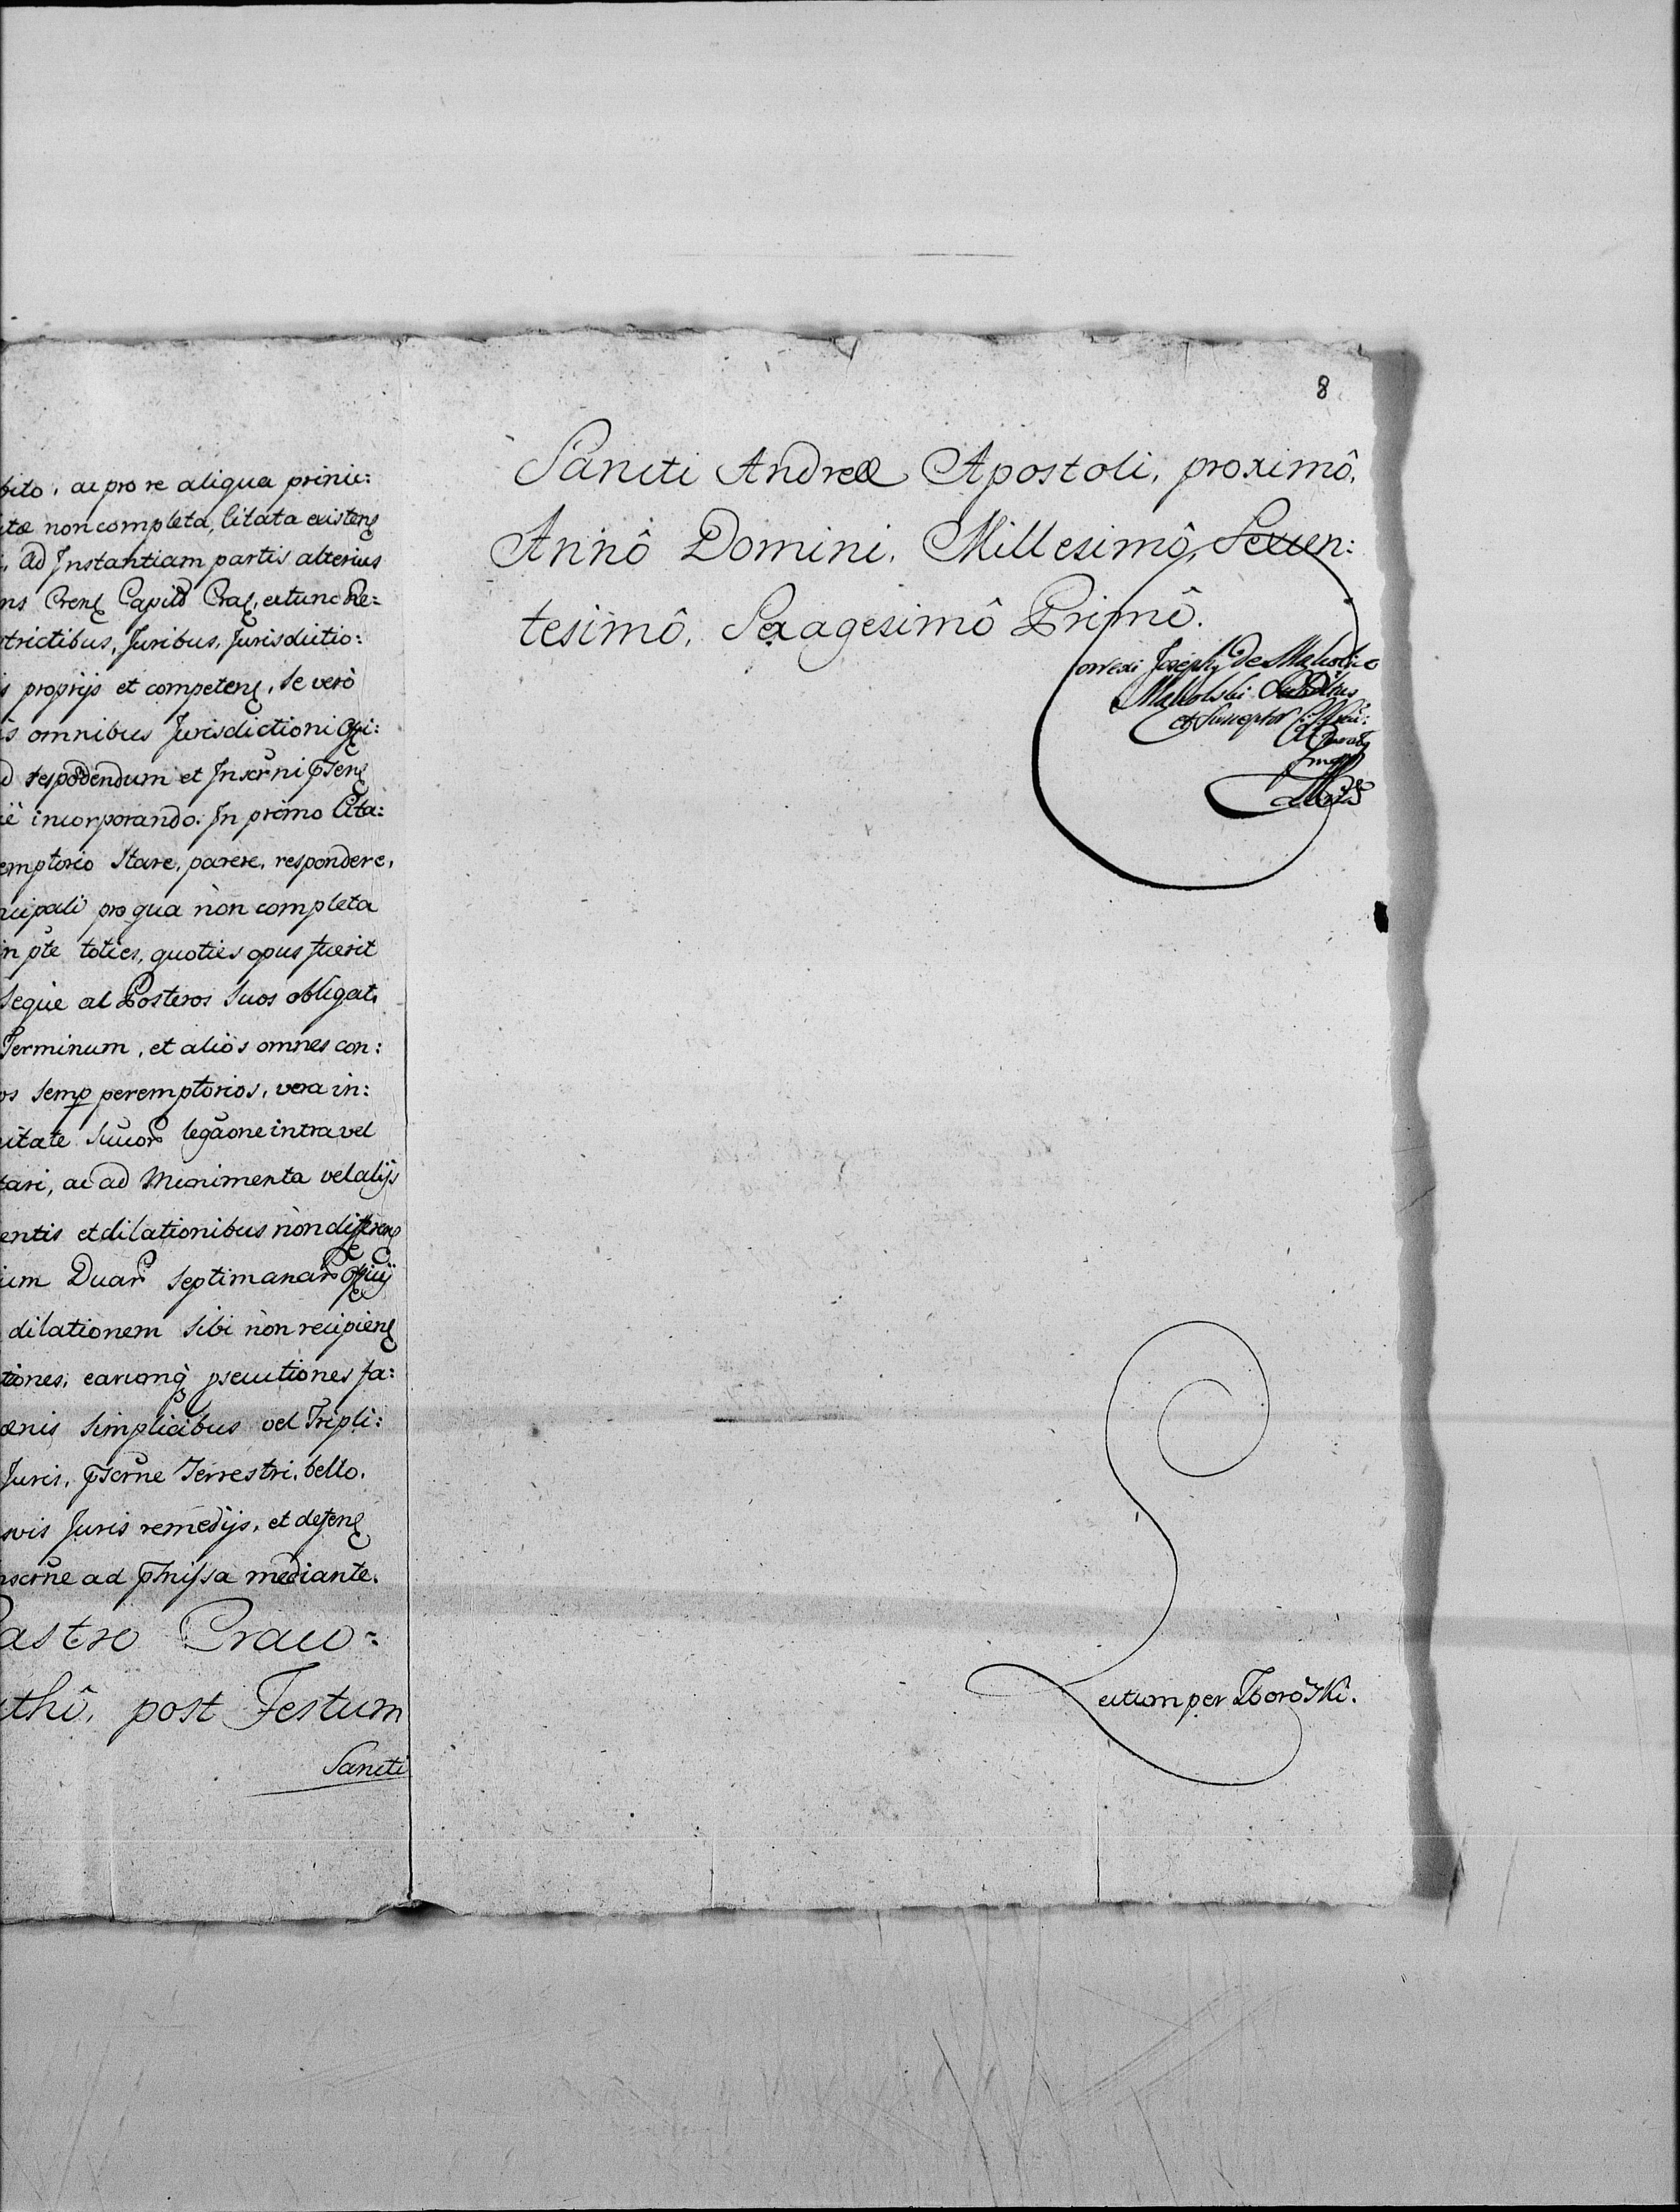 bito, ac pro re aliqua princi:
itæ non completa, Citata existens
ad Instantiam partis alterius
ns Crens Capitl Cral, extunc Re=
trictibus, Juribus, Jurisdictio:
s proprijs et competens, se verò
is omnibus Jurisdictioni
d respōdendum et
incorporando. In primo Cita:
emptorio Stare, parere, respondere,
ncipali pro qua non completa
in pte toties, quoties opus fuerit
Seque ac Posteros Suos obligat.
Terminum, et alios omnes con:
os semp peremptorios, vera in:
itate legaone intra vel
tari, ac ad Munimenta vel alijs
entis et dilationibus non
um Duar septimanar
dilationem sibi non recipiens
tiones, earumq psecutiones fa:
œnis simplicibus vel Tripli:
Juris, Terrestri, bello,
svis Juris remedijs, et
ad mediante.
astro Craco=
thî, post Festum
Sancti
8
Sancti Andreæ Apostoli, proximô,
Annô Domini, Millesimô, Sexcen:
tesimô, Sexagesimô Primô.
orrexi Joseph de
Makolski
et Susceptor
Lectum per Zborōski.